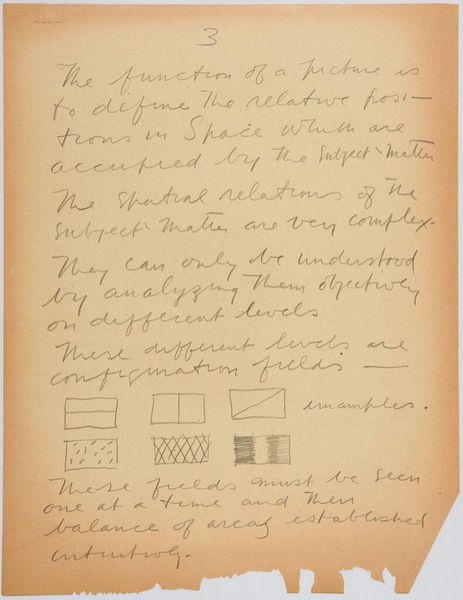 3
The function of a picture is
to define the relative posi-
tions in Space which are
occupied by the Subject-Matter
The spatial relations of the
Subject-Matter are very complex.
They can only be understood
by analyzing them objectively
on different levels
These different levels are
configuration fields —
examples.
These fields must be seen
one at a time and then
balance of areas established
intuitively.